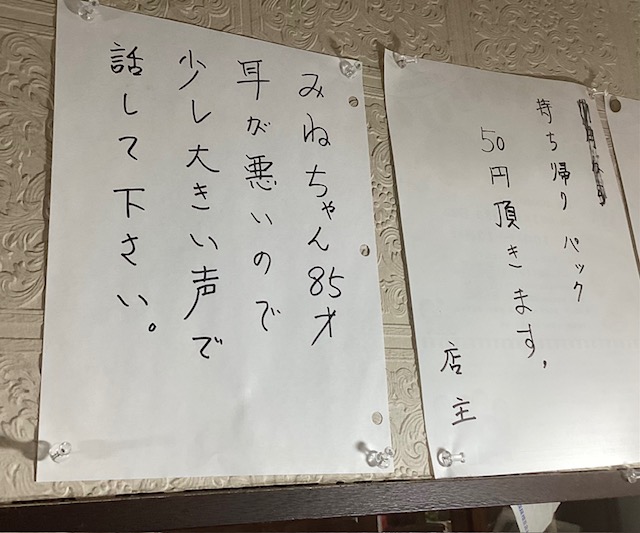 みねちゃん85才
耳が悪いので
少し大きい声で
話して下さい。
持ち帰りパック
50円頂きます,
店主